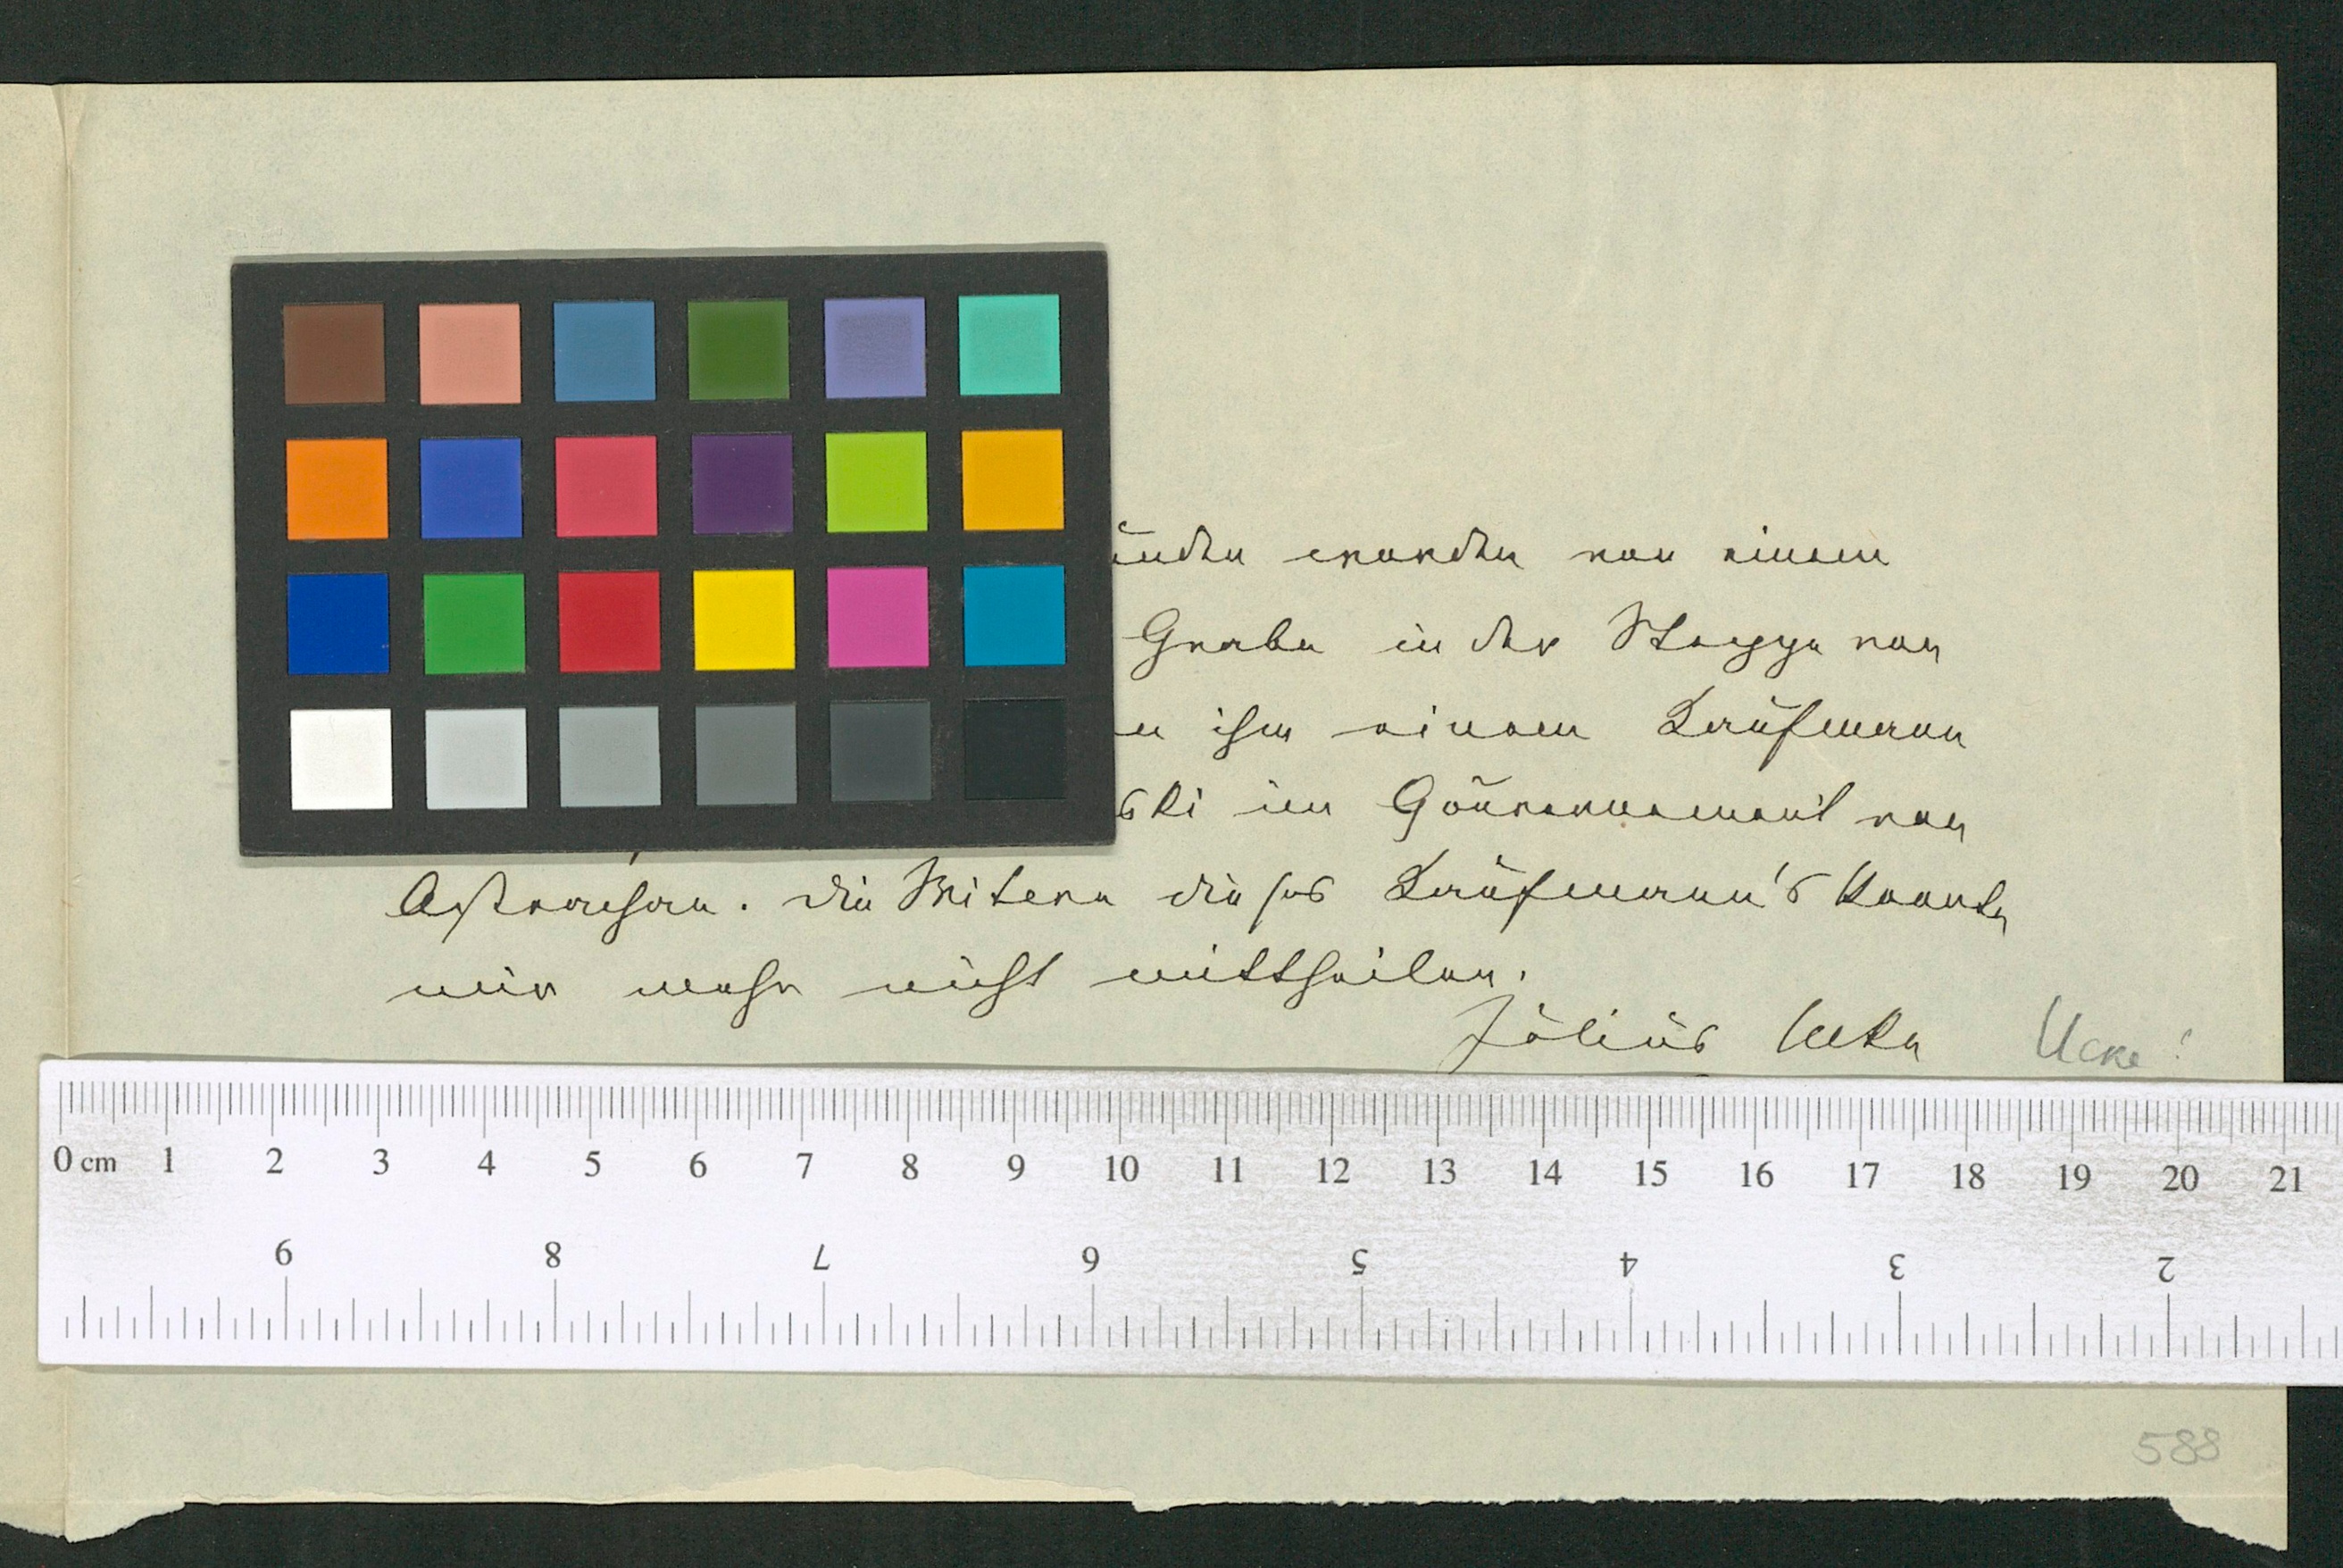 worden von einem
Grabe in der Steppe von
ihm einem Kaufmann
ski im Gouvernement von
Astrachan. Die Mitern dieses Kaufmann's konnte
mir mehr nicht mittheilen.
Julius Ucke Ucke!
0 cm 1 2 3 4 5 6 7 8 9 10 11 12 13 14 15 16 17 18 19 20 21
9 8 7 6 5 4 3 2
588